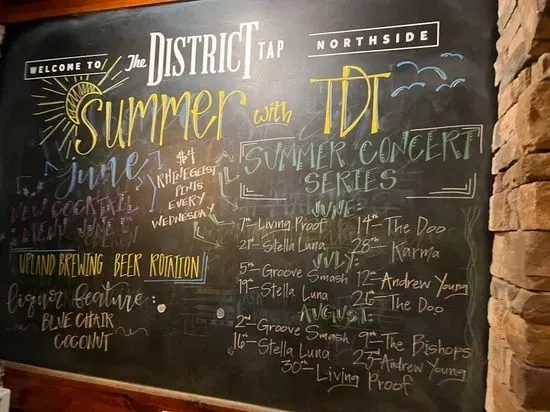 WELCOME TO The DISTRICT TAP NORTHSIDE
SUMMER with TDT
June
NEW COCKTAIL
MENU JUNE
$4
RHINEGEIST
PINTS
EVERY
WEDNESDAY
UPLAND BREWING BEER ROTATION
liquor feature:
BLUE CHAIR
COCONUT
SUMMER CONCERT
SERIES
JUNE:
7th - Living Proof
14th - The Doo
21st - Stella Luna
28th - Karma
JULY:
5th - Groove Smash
12th - Andrew Young
19th - Stella Luna
26th - The Doo
AUGUST:
2nd - Groove Smash
9th - The Bishops
16th - Stella Luna
23rd - Andrew Young
30th - Living Proof